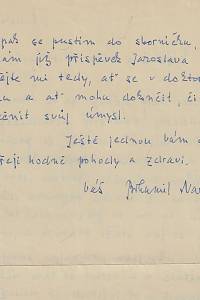 pak se pustím do sborníčku,
ám již příspěvek Jaroslava
ějte mi tedy, ať se v
u a ať mohu dokončit, či
ěnit svůj úmysl.
Ještě jednou vám
řeji hodně pohody a zdraví.
Váš Bohumil